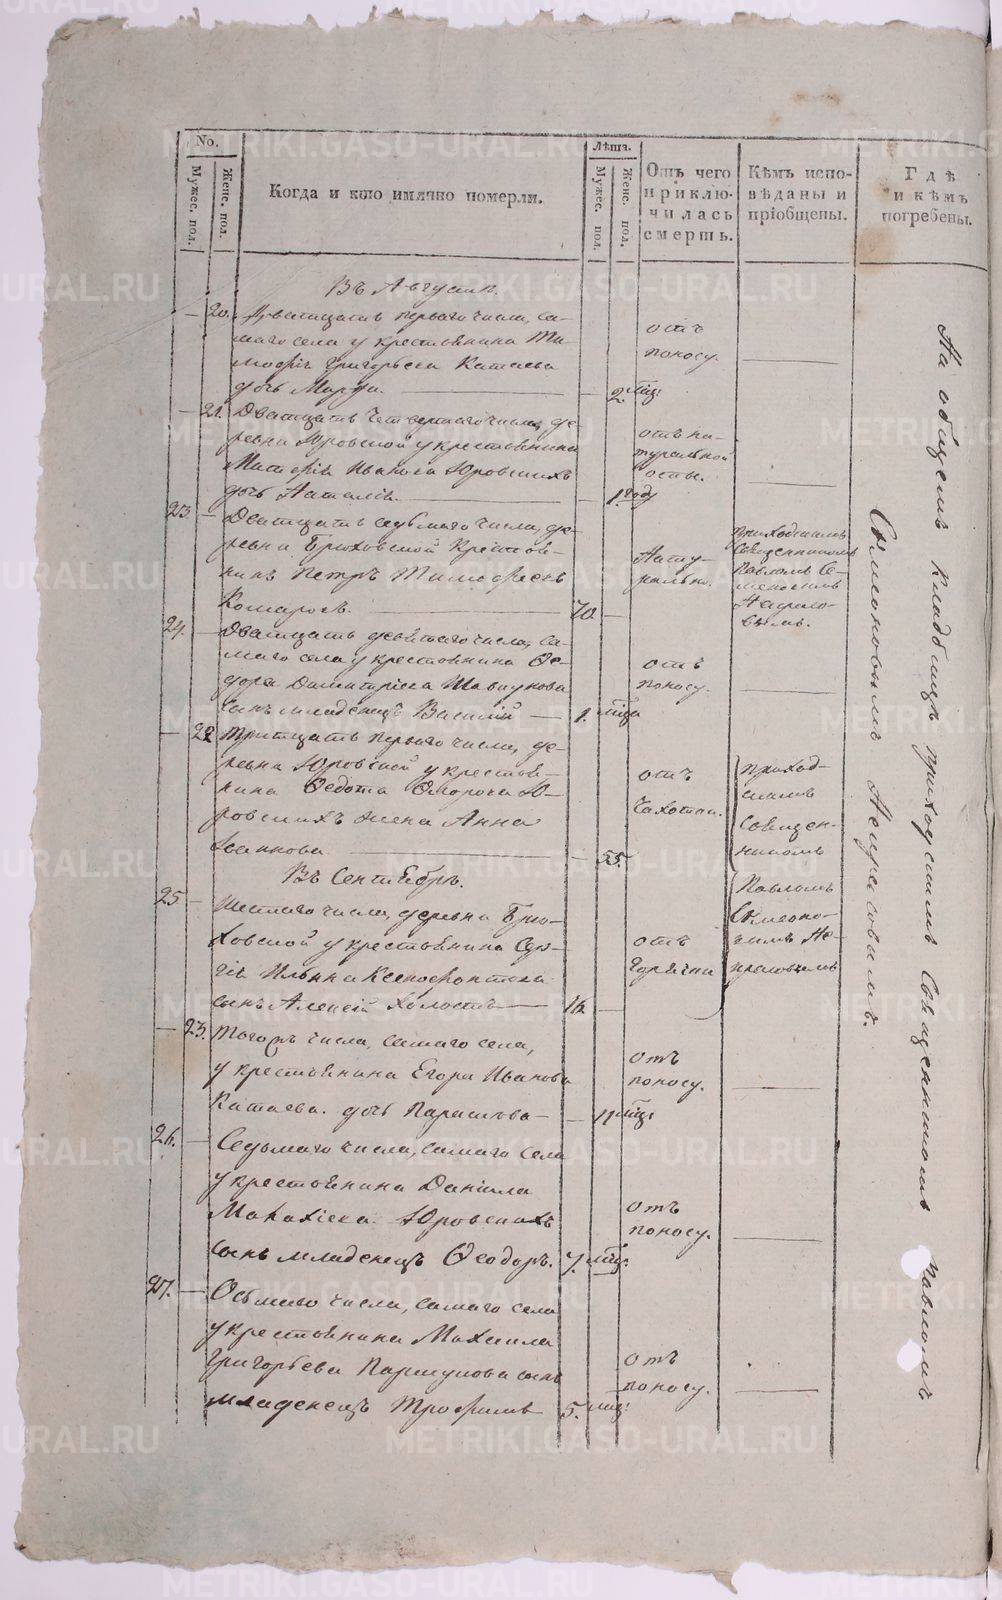 No.
Мужес. пол.
Женс. пол.
Когда и кто имянно померли.
Лѣта.
Мужес. пол.
Женс. пол.
Отъ чего
приклю-
чилась
смерть.
Кѣмъ испо-
вѣданы и
пріобщены.
Гдѣ
и кѣмъ
погребены.
Въ Августѣ.
— 20. Дватцать перваго числа, са-
маго села у крестьянина Ти-
мофѣя Григорьева Катаева
дочь Марфа. — 2. мца
отъ
поносу.
— 21. Дватцать четвертаго числа, де-
ревни Юровской у крестьянина
Матвѣя Иванова Юровскихъ
дочь Наталія. — 1. году
отъ на-
туральной
оспы.
23. — Дватцать седьмаго числа, де-
ревни Брюховской крестья-
нинъ Петръ Тимофѣевъ
Комаровъ. 70. —
Нату-
рально.
приходскимъ
Священникомъ
Павломъ Се-
меновымъ
Некрасо-
вымъ.
24. — Дватцать девятаго числа, са-
маго села у крестьянина Ѳе-
дора Димитріева
сынъ младенецъ Василій — 1. мца
отъ
поносу.
— 22 Тритцать перваго числа, де-
ревни Юровской у крестья-
нина Ѳедота Ю-
ровскихъ жена Анна
Іванова — 55.
отъ
Чахотки.
приход-
скимъ
Священ-
никомъ
Павломъ
Симеоно-
вымъ Не-
красовымъ
Въ Сентябрѣ.
25 — Шестаго числа, деревни Брю-
ховской у крестьянина
Ильина Ксенофонтова
сынъ Алексѣй холостъ — 16. —
отъ
Горячки
— 23. Тогожъ числа, самаго села,
у крестьянина Егора Иванова
Катаева. дочь Парасковья — 11 мца
отъ
поносу.
26. — Седьмаго числа, самаго села
у крестьянина Даніила
Малахіева Юровскихъ
сынъ младенецъ Ѳеодоръ. 7. мца.
отъ
поносу.
27. — Осьмаго числа, самаго села
у крестьянина Михаила
Григорьева Паршукова сынъ
младенецъ Трофимъ 5. мца.
отъ
поносу.
На общемъ кладбищѣ приходскимъ Священникомъ Павломъ
Симеоновымъ Некрасовымъ.
METRIKI.GASO-URAL.RU